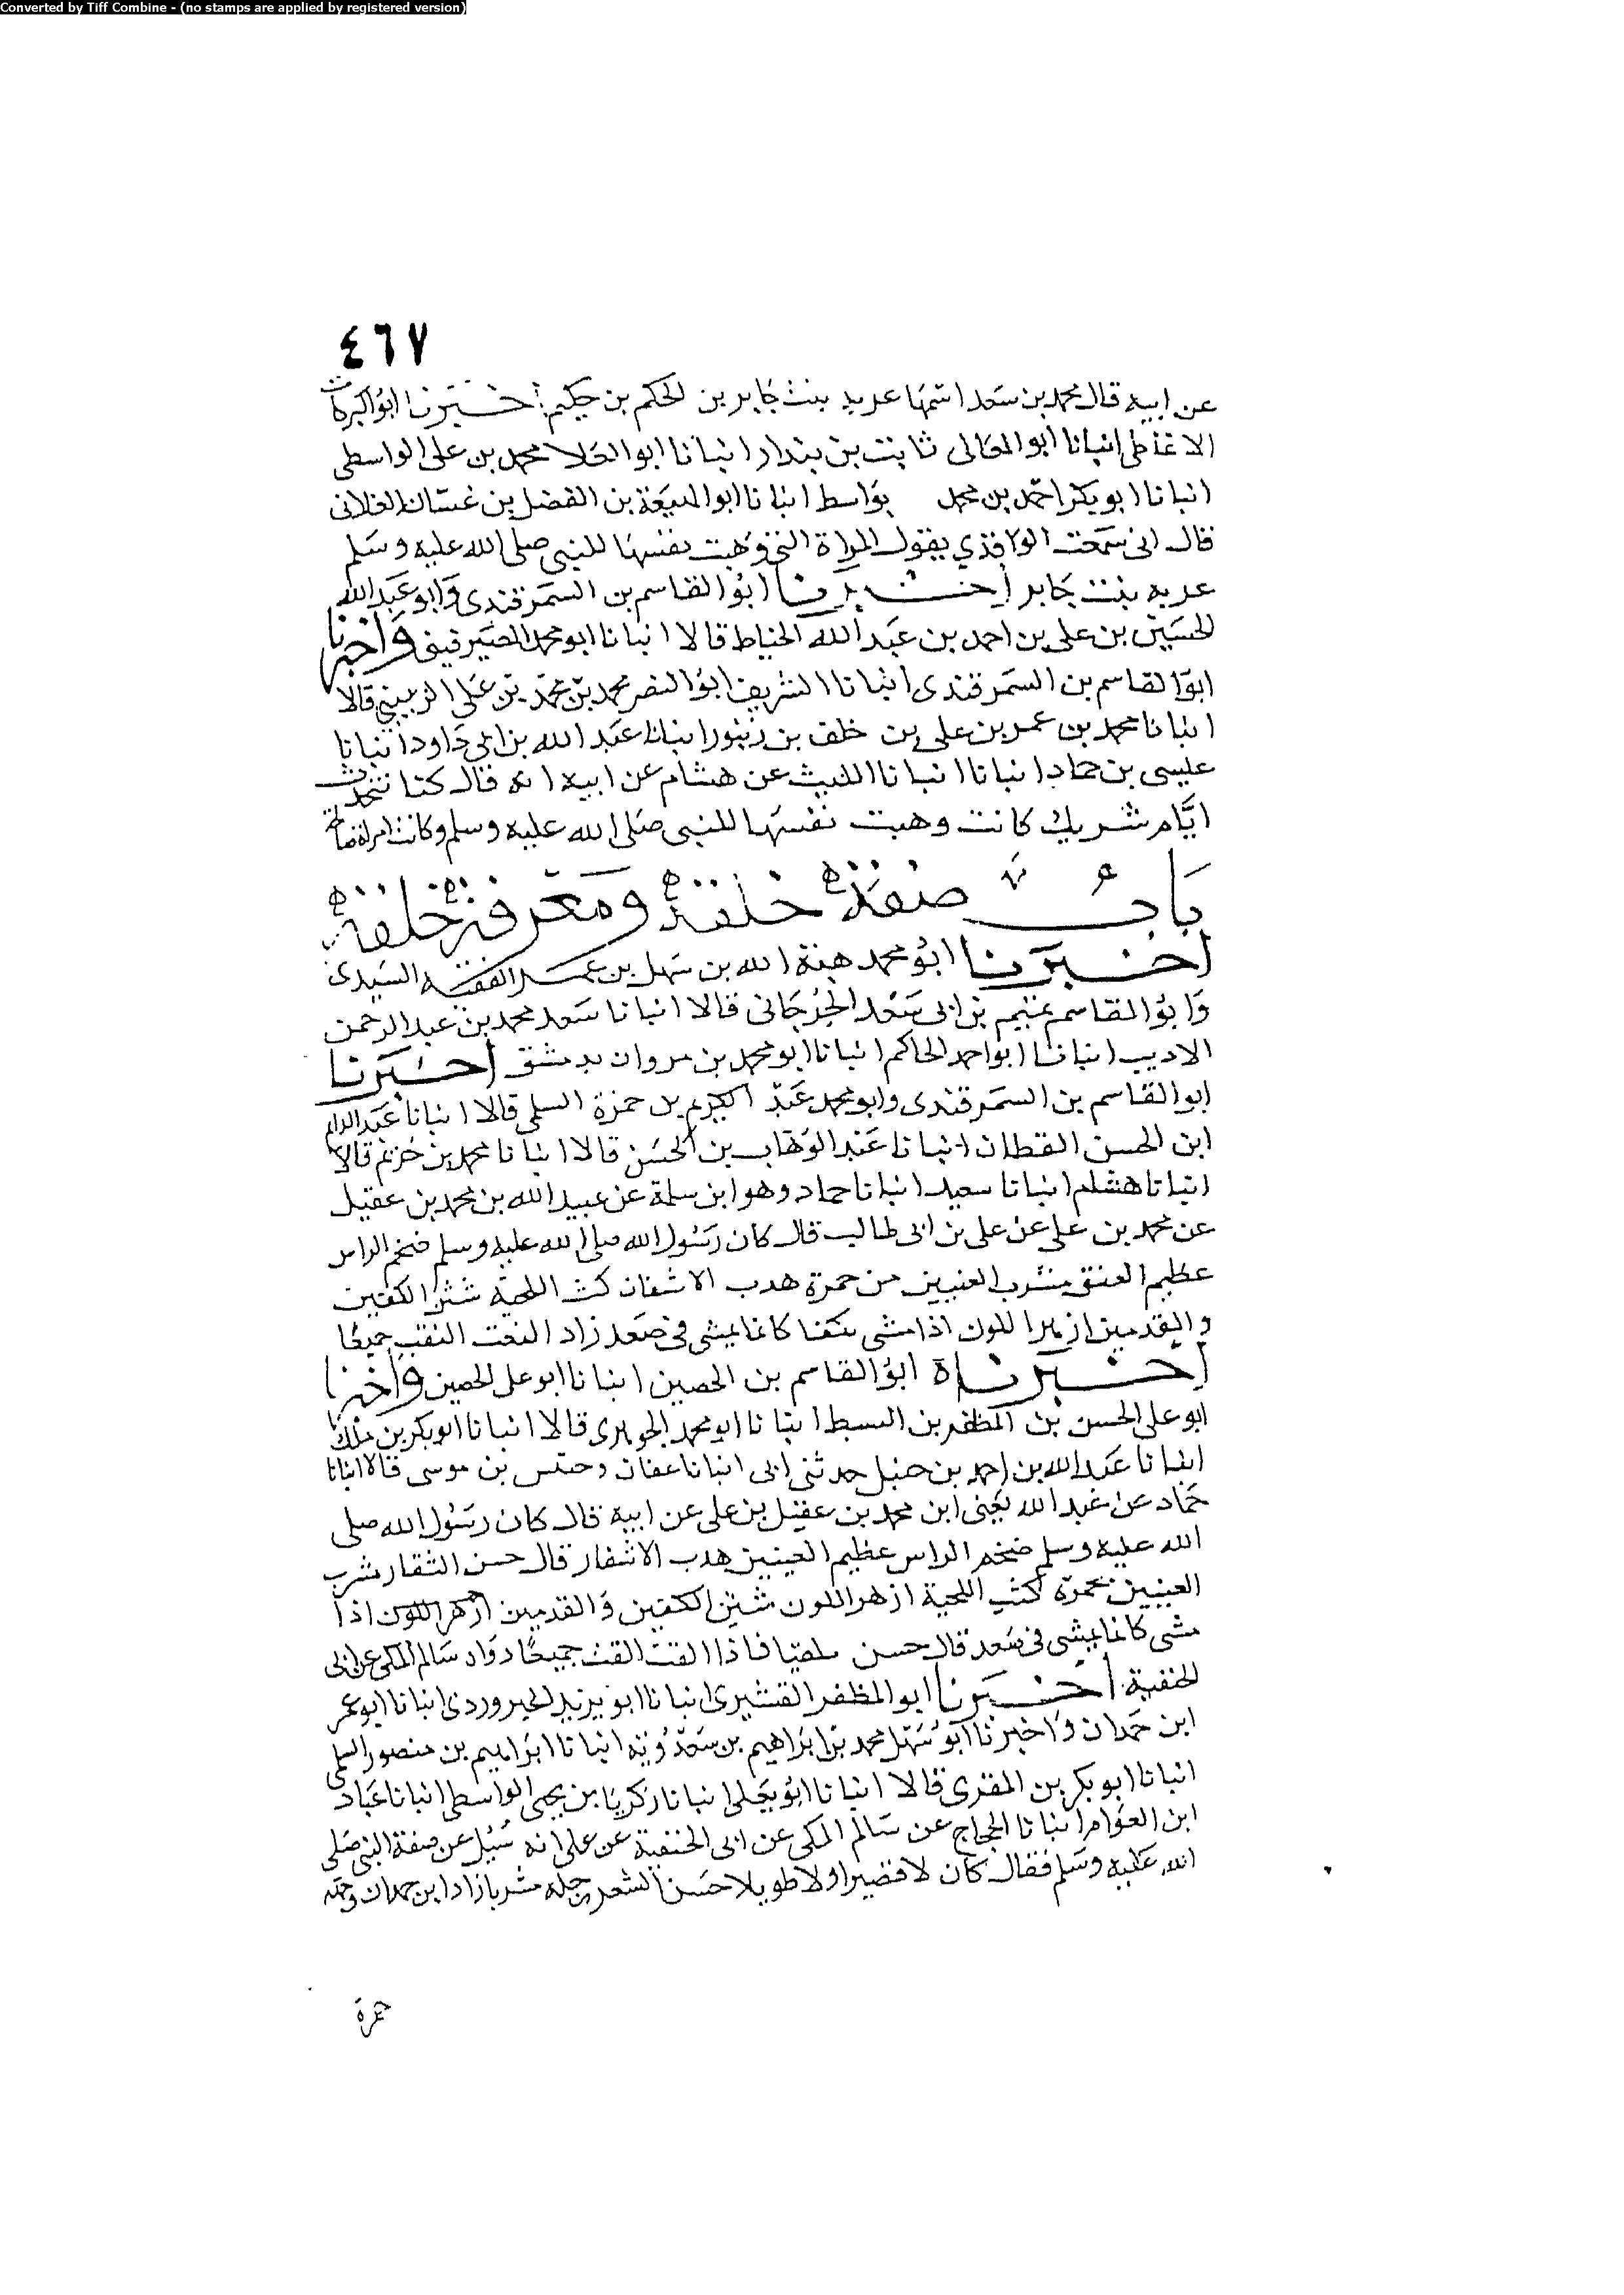 Converted by Tiff Combine - (no stamps are applied by registered version)
٤٦٧
عن ابيه قال محمد بن سعد اسمها عربه بنت جابر بن الحكم بن حكيم اخبرنا ابو البركات
الانماطي انبانا ابو المعالى ثابت بن بندار انبانا ابو العلا محمد بن على الواسطى
انبانا ابو بكر احمد بن محمد بواسط انبانا ابو امية بن الفضل بن غسان الغلابى
قال ابى سمعت الواقدي يقول المراة التي وهبت نفسها للنبى صلى الله عليه وسلم
عربه بنت جابر اخبرنا ابو القاسم بن السمرقندى وابو عبد الله
الحسين بن على بن احمد بن عبد الله الخياط قالا انبانا ابو محمد الصيرفينى واخبرنا
ابو القاسم بن السمرقندى انبانا الشريف ابو النصر محمد بن محمد بن على الزينبي قالا
انبانا محمد بن عمر بن على بن خلف بن زنبور انبانا عبد الله بن ابي داود انبانا
عليسى بن حماد انبانا انبانا الليث عن هشام عن ابيه انه قال كنا نتحدث
ايام شريك كانت وهبت نفسها للنبى صلى الله عليه وسلم وكانت امراة صالحة
باب صفة خلقة ومعرفة خلقة
اخبرنا ابو محمد هبة الله بن سهل بن عمر الفقيه السيدى
وابو القاسم تميم بن ابى سعد الجرجانى قالا انبانا سعد محمد بن عبد الرحمن
الاديب انبانا ابو احمد الحاكم انبانا ابو محمد بن مروان بدمشق اخبرنا
ابو القاسم بن السمرقندى وابو محمد عبد الكريم بن حمزة السلمى قالا انبانا عبد الدايم
ابن الحسن القطان انبانا عبد الوهاب بن الحسن قالا انبانا محمد بن خزيم قالا
انبانا هشام انبانا سعيد انبانا حماد وهو ابن سلمة عن عبيد الله بن محمد بن عقيل
عن محمد بن على عن على بن ابى طالب قال كان رسول الله صلى الله عليه وسلم ضخم الراس
عظيم العنق مشرب العنيين من حمرة هدب الاشفان كث اللحية شثن الكفين
والقدمين ازهر اللون اذا مشى تكفا كانما يمشى في صعد زاد النعت النقب جميعا
اخبرناه ابو القاسم بن الحصين انبانا ابو على الحصين واخبرنا
ابو على الحسن بن المظفر بن السبط انبانا ابو محمد الجوهرى قالا انبانا ابو بكر بن ملك
انبانا عبد الله بن احمد بن حنبل حدثنى ابى انبانا عفان وحسن بن موسى قالا انبانا
حماد عن عبد الله يعنى ابن محمد بن عقيل بن على عن ابيه قال كان رسول الله صلى
الله عليه وسلم ضخم الراس عظيم العينين هدب الاشفار قال حسن الشفار مشرب
العينين بحمرة كث اللحية ازهر اللون شثن الكفين والقدمين ازهر اللون اذا
مشى كانما يمشى فى صعد قال حسن ملقيا فاذا القت القت جميعا رواه سالم المكى عن ابى
الحنفية اخبرنا ابو المظفر القشيرى انبانا ابو يزيد الحيروردى انبانا ابو عمر
ابن حمدان واخبرنا ابو سهل محمد بن ابراهيم بن سعدويه انبانا ابراهيم بن منصور السلمى
انبانا ابو بكر بن المقرى قالا انبانا ابو يعلى انبانا زكريا بن يحيى الواسطى انبانا عباد
ابن العوام انبانا الحجاج عن سالم المكى عن ابى الحنفية عن على انه سئل عن صفة النبى صلى
الله عليه وسلم فقال كان لا قصيرا ولا طويلا حسن الشعر رجله مشربا زاد ابن حمدان وجهه
حمرة